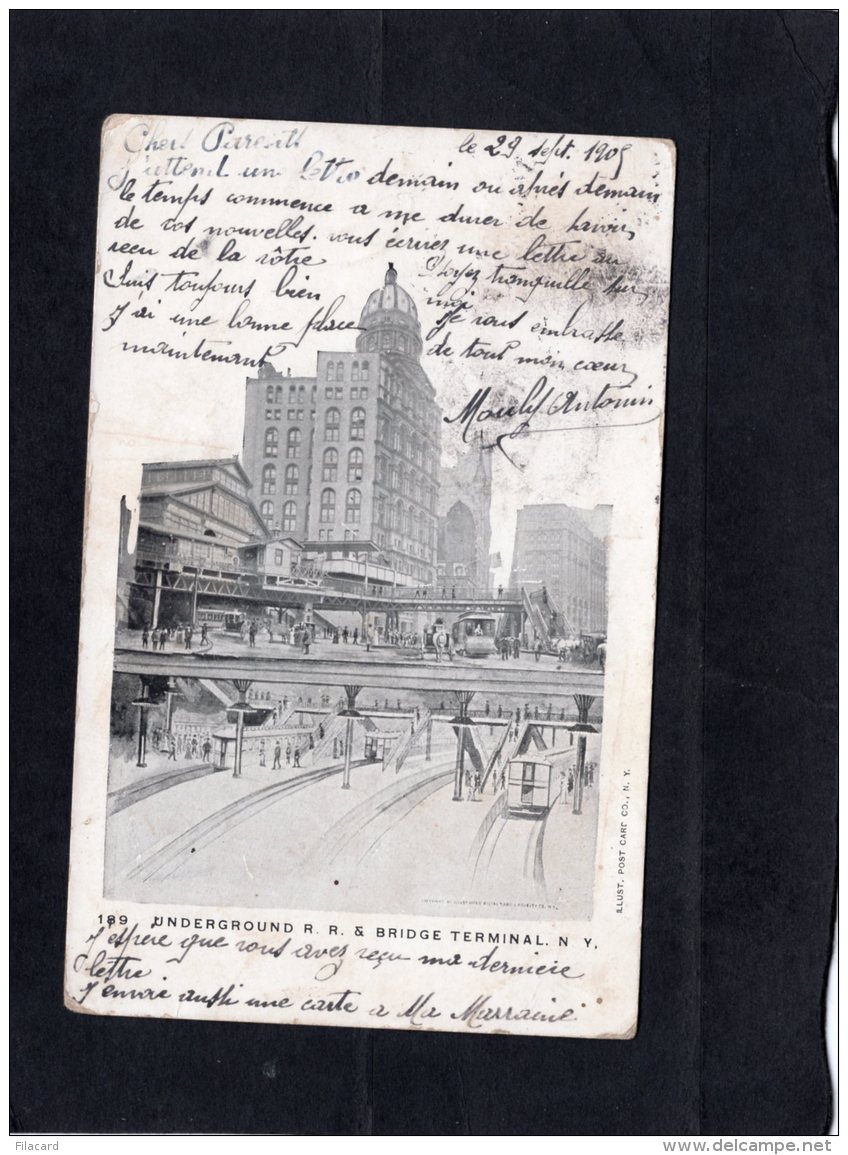 le 29 sept. 1905
Chers Parents
J'attend une lettre demain ou après demain
le temps commence a me durer de savoir
de vos nouvelles. vous écrirez une lettre au
recu de la vôtre
Suis toujours bien
J'ai une bonne place
maintenant
Soyez tranquille sur
moi
Je vous embrasse
de tout mon cœur
Antonin
189 UNDERGROUND R. R. & BRIDGE TERMINAL. N Y.
ILLUST. POST CARD CO., N. Y.
J'espère que vous avez reçu ma derniere
lettre
J'envoie aussi une carte a Ma Marraine
Filacard
delcampe.net